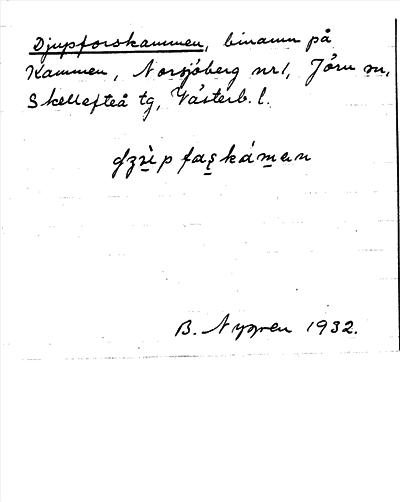 Djupforskammen, binamn på
Kammen, Norsjöberg nr 1, Jörn sn,
Skellefteå tg, Västerb. l.
B. Nygren 1932.